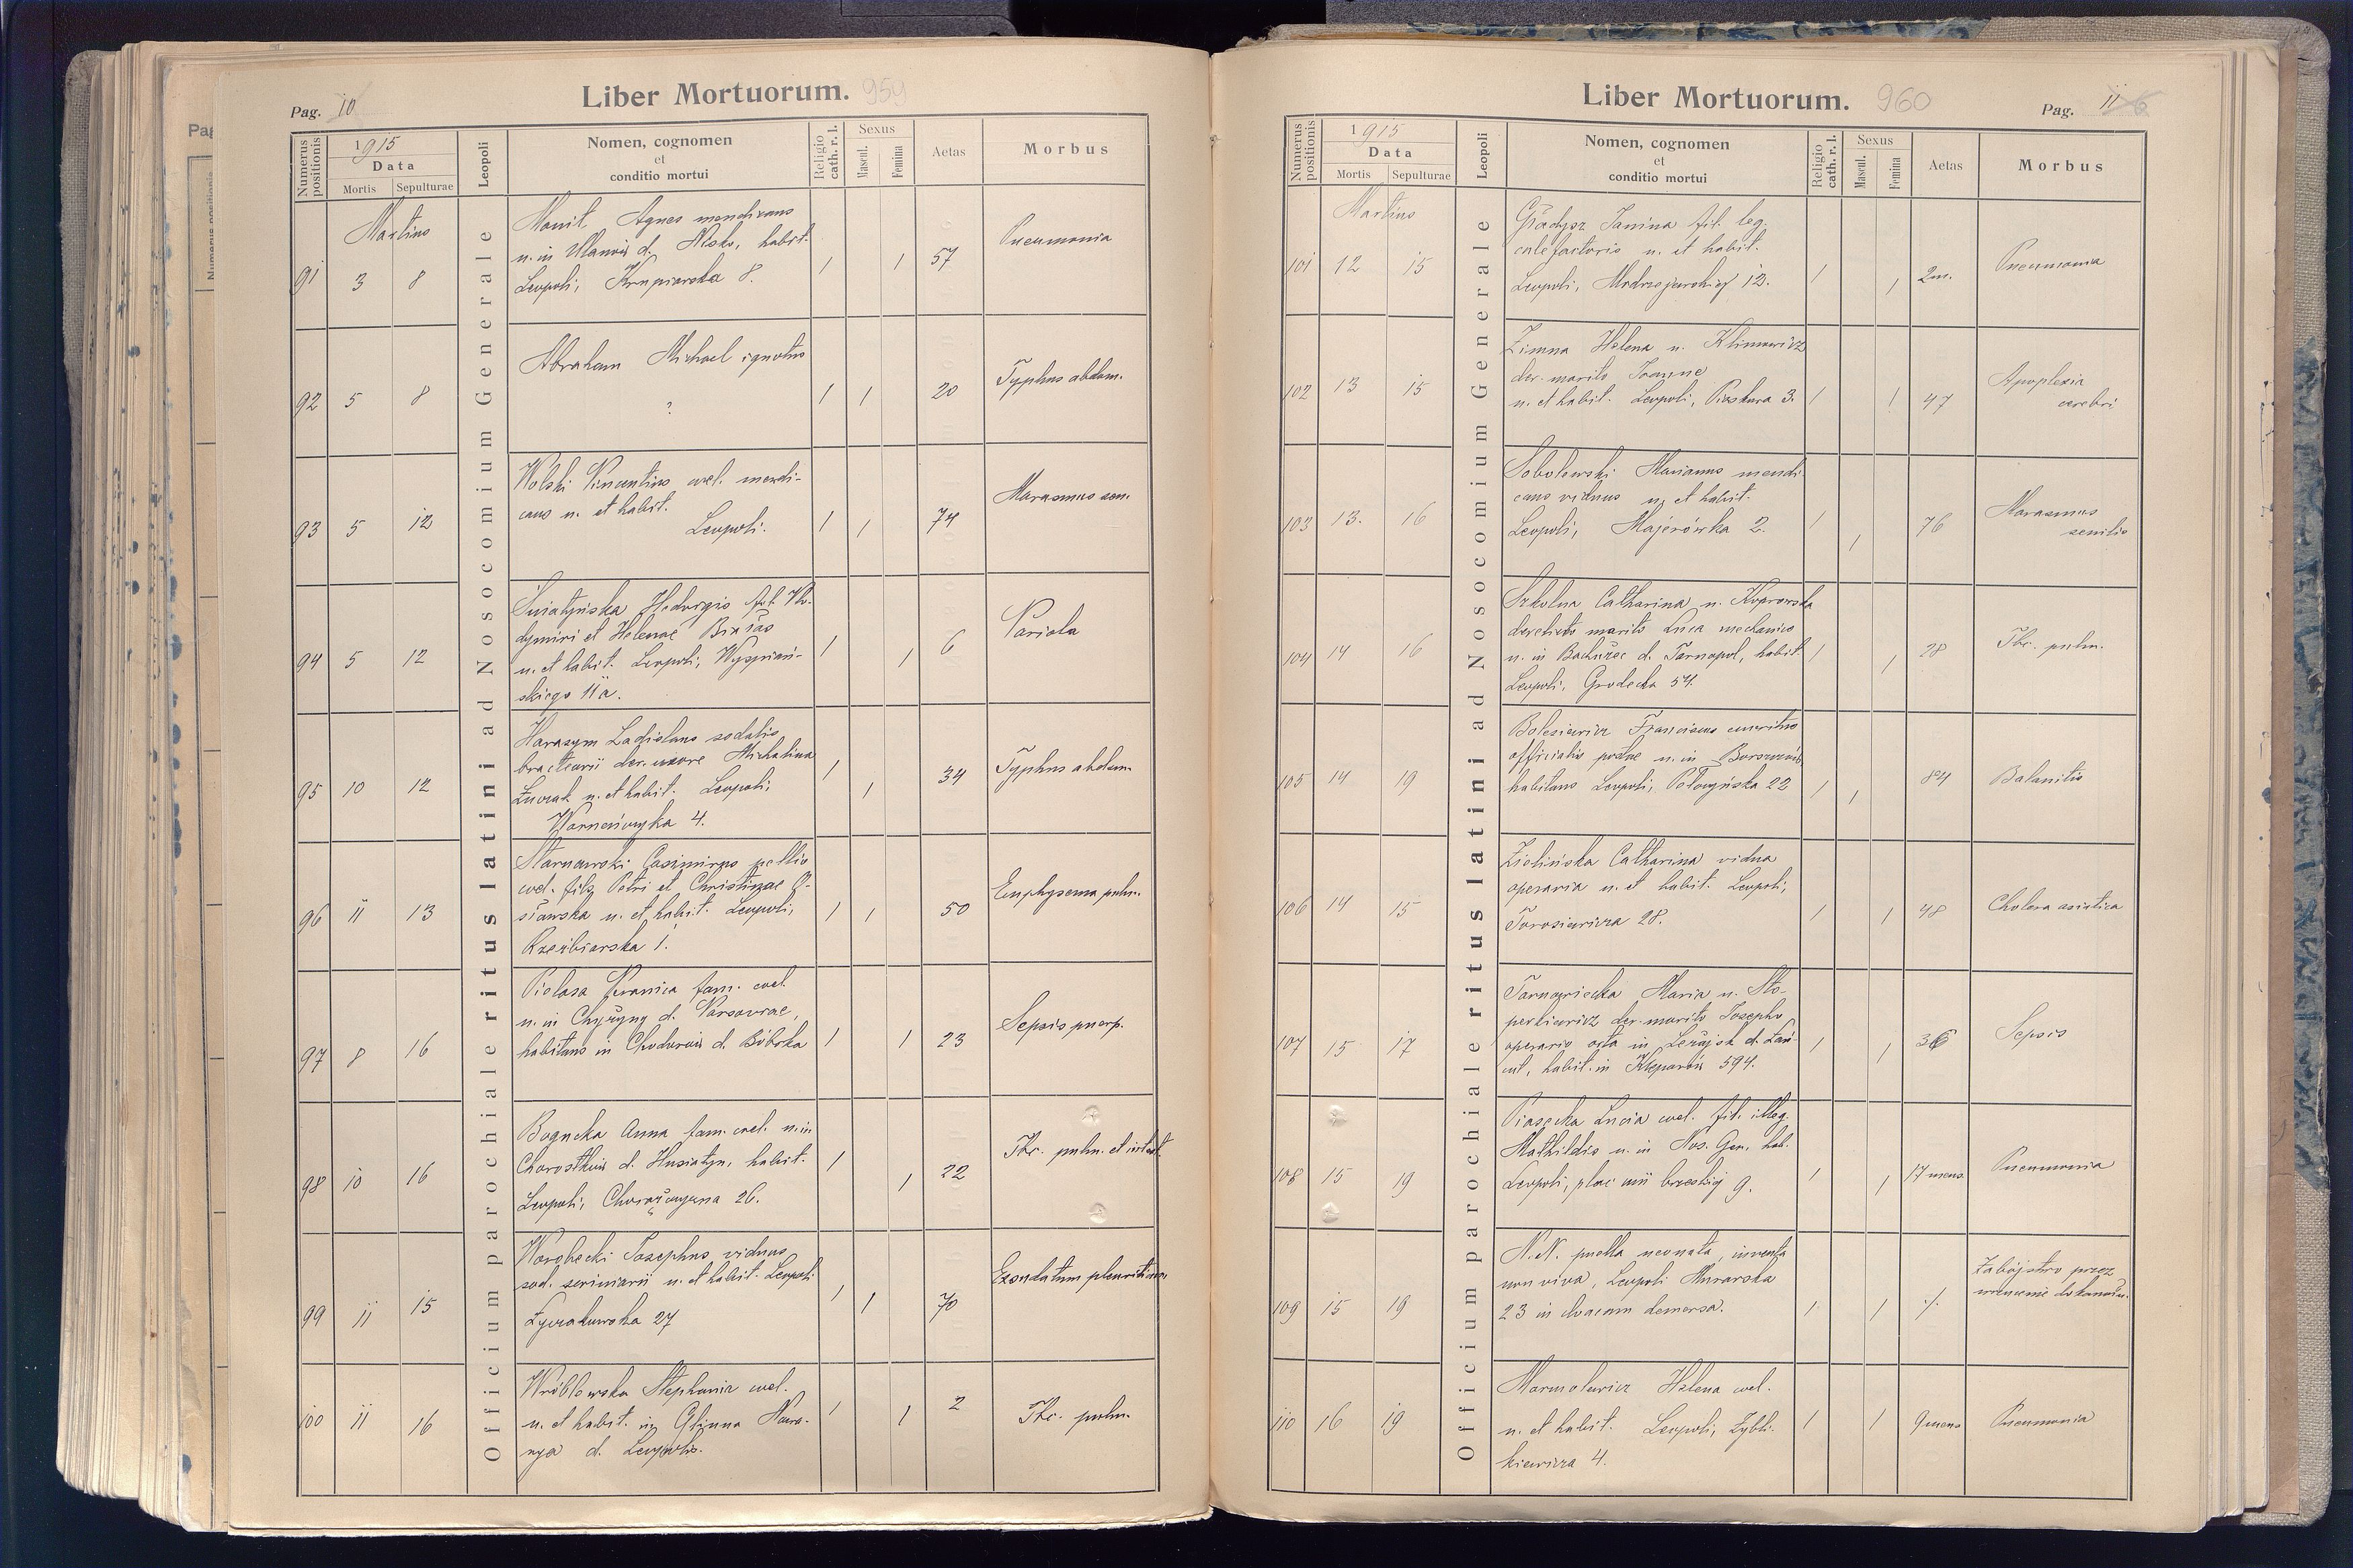 Liber Mortuorum. 959
Pag. 10
Numerus positionis
1915
Data
Mortis
Sepulturae
Leopoli
Nomen, cognomen
et
conditio mortui
Religio cath. r. l.
Sexus
Mascul.
Femina
Aetas
Morbus
Officium parochiale ritus latini ad Nosocomium Generale
Martius
91 3 8
Agnes mendicans
n. in Ulanów d. Nisko, habit.
Leopoli, Krupiarska 8.
1 1 57 Pneumonia
92 5 8
Abraham Michael ignotus
?
1 1 20 Typhus abdom.
93 5 12
Wolski Vincentius cael. mendi-
cans n. et habit.
Leopoli.
1 1 74 Marasmus sen.
94 5 12
Śniatyńska Hedvigis fil. Vlo-
dymiri et Helenae
n. et habit. Leopoli, Wyspiań-
skiego 11a.
1 1 6 Variola
95 10 12
Harasym Ladislaus sodalis
bractearii der. uxore Michalina
n. et habit. Leopoli,
Warneńczyka 4.
1 1 34 Typhus abdom.
96 11 13
Starnawski Casimirus pellio
cael. filius Petri et Christinae
n. et habit. Leopoli,
Rzeźbiarska 1.
1 1 50 Emphysema pulm.
97 8 16
Pielasa Veronica fam. cael.
n. in d. Varsoviae,
habitans in Chodorów d. Bóbrka
1 1 23 Sepsis puerp.
98 10 16
Bogucka Anna fam. cael. n. in
Chorostków d. Husiatyn, habit.
Leopoli, Chorąszczyzna 26.
1 1 22 Tbc. pulm. et intest.
99 11 15
Worobecki Josephus viduus
sod. scriniarii n. et habit. Leopoli
Żyrakowska 27
1 1 70 Exsudatum pleuriticum
100 11 16
Wróblewska Stephania cael.
n. et habit. in Glinna Nawa-
rya d. Leopolis.
1 1 2 Tbc. pulm.
Liber Mortuorum. 960
Pag. 11
Numerus positionis
1915
Data
Mortis
Sepulturae
Leopoli
Nomen, cognomen
et
conditio mortui
Religio cath. r. l.
Sexus
Mascul.
Femina
Aetas
Morbus
Officium parochiale ritus latini ad Nosocomium Generale
Martius
101 12 15
Gładysz Janina fil. leg.
calefactoris n. et habit.
Leopoli, 12.
1 1 2m. Pneumonia
102 13 15
Zimna Helena n. Klimowicz
der. marito Joanne
n. et habit. Leopoli, Piaskowa 3.
1 1 47 Apoplexia
cerebri
103 13. 16
Sobolewski Marianus mendi-
cans viduus n. et habit.
Leopoli, Majerówka 2.
1 1 76 Marasmus
senilis
104 14 16
Szkolna Catharina n. Koprowska
derelicto marito Luca mechanico
n. in d. Tarnopol, habit.
Leopoli, Grodecka 54.
1 1 28 Tbc. pulm.
105 14 19
Bolesiewicz Franciscus emeritus
officialis postae n. in Borszczów
habitans Leopoli, Potoczyńska 22
1 1 84 Balanitis
106 14 15
Zielińska Catharina vidua
operaria n. et habit. Leopoli,
Torosiewicza 28.
1 1 48 Cholera asiatica
107 15 17
Maria n. Sto-
der. marito Josepho
operario orta in Leżajsk d. Łań-
cut, habit. in Kleparów 594.
1 1 36 Sepsis
108 15 19
Piasecka Lucia cael. fil. illeg.
Mathildis n. in Nos. Gen. hab.
Leopoli, plac unii brzeskiej 9.
1 1 17 mens. Pneumonia
109 15 19
N.N. puella neonata, inventa
non viva, Leopoli Murarska
23 in cloacam demersa.
1 1 ./. Zabójstwo przez
wrzucenie do kanału.
110 16 19
Marmolewicz Helena cael.
n. et habit. Leopoli, Zybli-
kiewicza 4.
1 1 9 mens Pneumonia